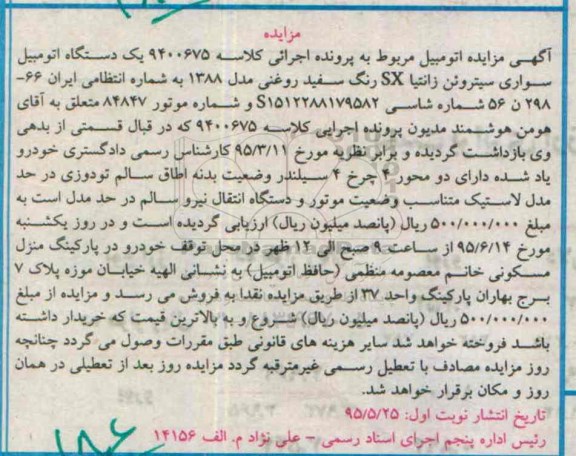 مزایده
آگهـی مزایده اتومبیل مربوط به پرونده اجرائی کلاسـه ۹۴۰۰۶۷۵ یک دستگاه اتومبیل
سـواری سیتروئن زانتیا SX رنگ سـفید روغنی مدل ۱۳۸۸ به شماره انتظامی ایران ۶۶-
۲۹۸ ن ۵۶ شـماره شاسـی S۱۵۱۲۲۸۸۱۷۹۵۸۲ و شـماره موتور ۸۴۸۴۷ متعلق به آقای
هومن هوشـمند مدیون پرونده اجرایی کلاسـه ۹۴۰۰۶۷۵ که در قبال قسـمتی از بدهی
وی بازداشـت گردیده و برابر نظریه مورخ ۹۵/۳/۱۱ کارشناس رسمی دادگستری خودرو
یاد شـده دارای دو محور ۴ چرخ ۴ سـیلندر وضعیت بدنه اطاق سـالم تودوزی در حد
مدل لاسـتیک متناسـب وضعیت موتور و دستگاه انتقال نیرو سـالم در حد مدل است به
مبلغ ۵۰۰/۰۰۰/۰۰۰ ریال (پانصد میلیون ریال) ارزیابی گردیده اسـت و در روز یکشـنبه
مورخ ۹۵/۶/۱۴ از سـاعت ۹ صبح الی ۱۲ ظهر در محل توقف خودرو در پارکینگ منزل
مسـکونی خانـم معصومه منظمی (حافظ اتومبیل) به نشـانی الهیه خیابـان موزه پلاک ۷
بـرج بهاران پارکینگ واحد ۳۷ از طریق مزایده نقدا به فروش می رسـد و مزایده از مبلغ
۵۰۰/۰۰۰/۰۰۰ ریال (پانصد میلیون ریال) شـروع و به بالاترین قیمت که خریدار داشـته
باشـد فروخته خواهد شد سـایر هزینه های قانونی طبق مقررات وصول می گردد چنانچه
روز مزایده مصادف با تعطیل رسـمی غیرمترقبه گردد مزایده روز بعد از تعطیلی در همان
روز و مکان برقرار خواهد شد.
تاریخ انتشار نوبت اول: ۹۵/۵/۲۵
رئیس اداره پنجم اجرای اسناد رسمی - علی نژاد م. الف ۱۴۱۵۶